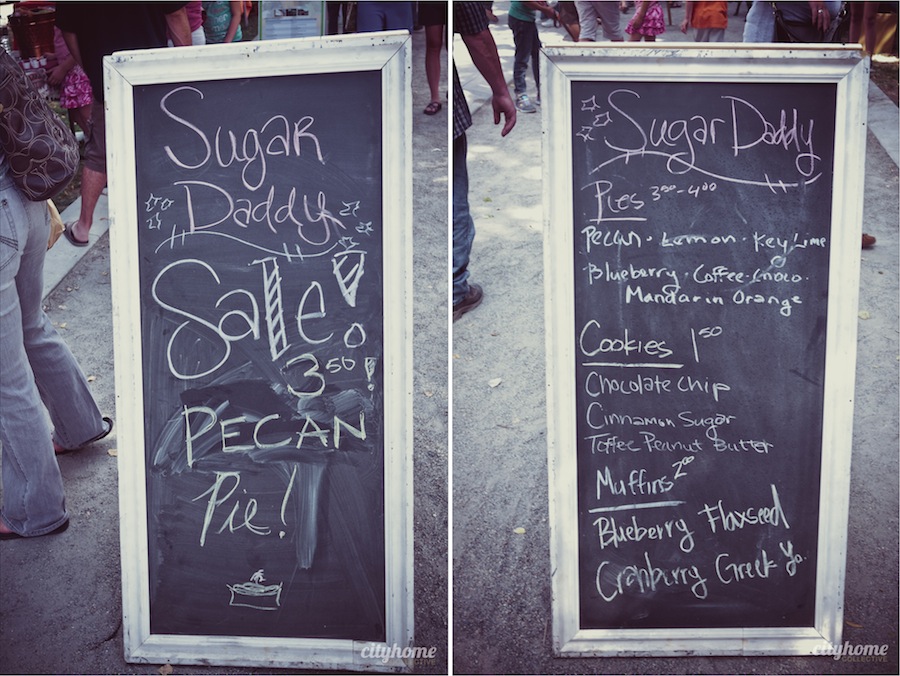 Sugar
Daddy
Sale!
3.50!
PECAN
Pie!
cityhome
COLLECTIVE
Sugar Daddy
Pies 3.50-4.00
Pecan · Lemon · Key Lime
Blueberry · Coffee-Choco.
Mandarin Orange
Cookies 1.50
Chocolate Chip
Cinnamon Sugar
Toffee Peanut Butter
Muffins 2.00
Blueberry Flaxseed
Cranberry Greek Yo.
cityhome
COLLECTIVE